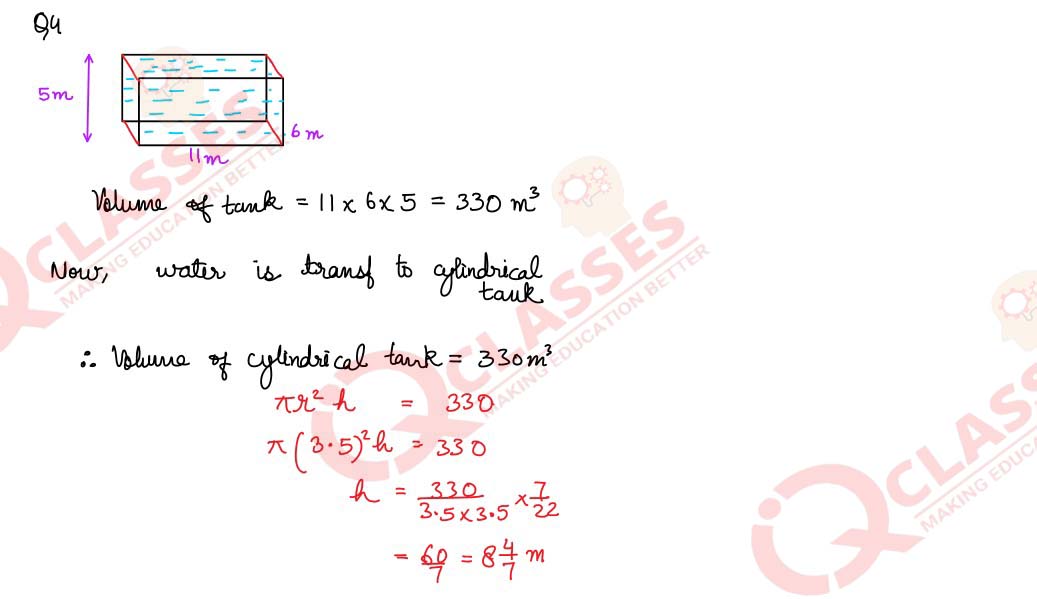 Q4
5m
6 m
11m
Volume of tank = 11 x 6 x 5 = 330 m³
Now, water is transf to cylindrical
tank
∴ Volume of cylindrical tank = 330m³
πr² h = 330
π(3.5)²h = 330
h = 330/3.5x3.5 x 7/22
= 60/7 = 8 4/7 m
CLASSES
MAKING EDUCATION BETTER
CLASSES
MAKING EDUCATION BETTER
CLASSES
MAKING EDUCATION